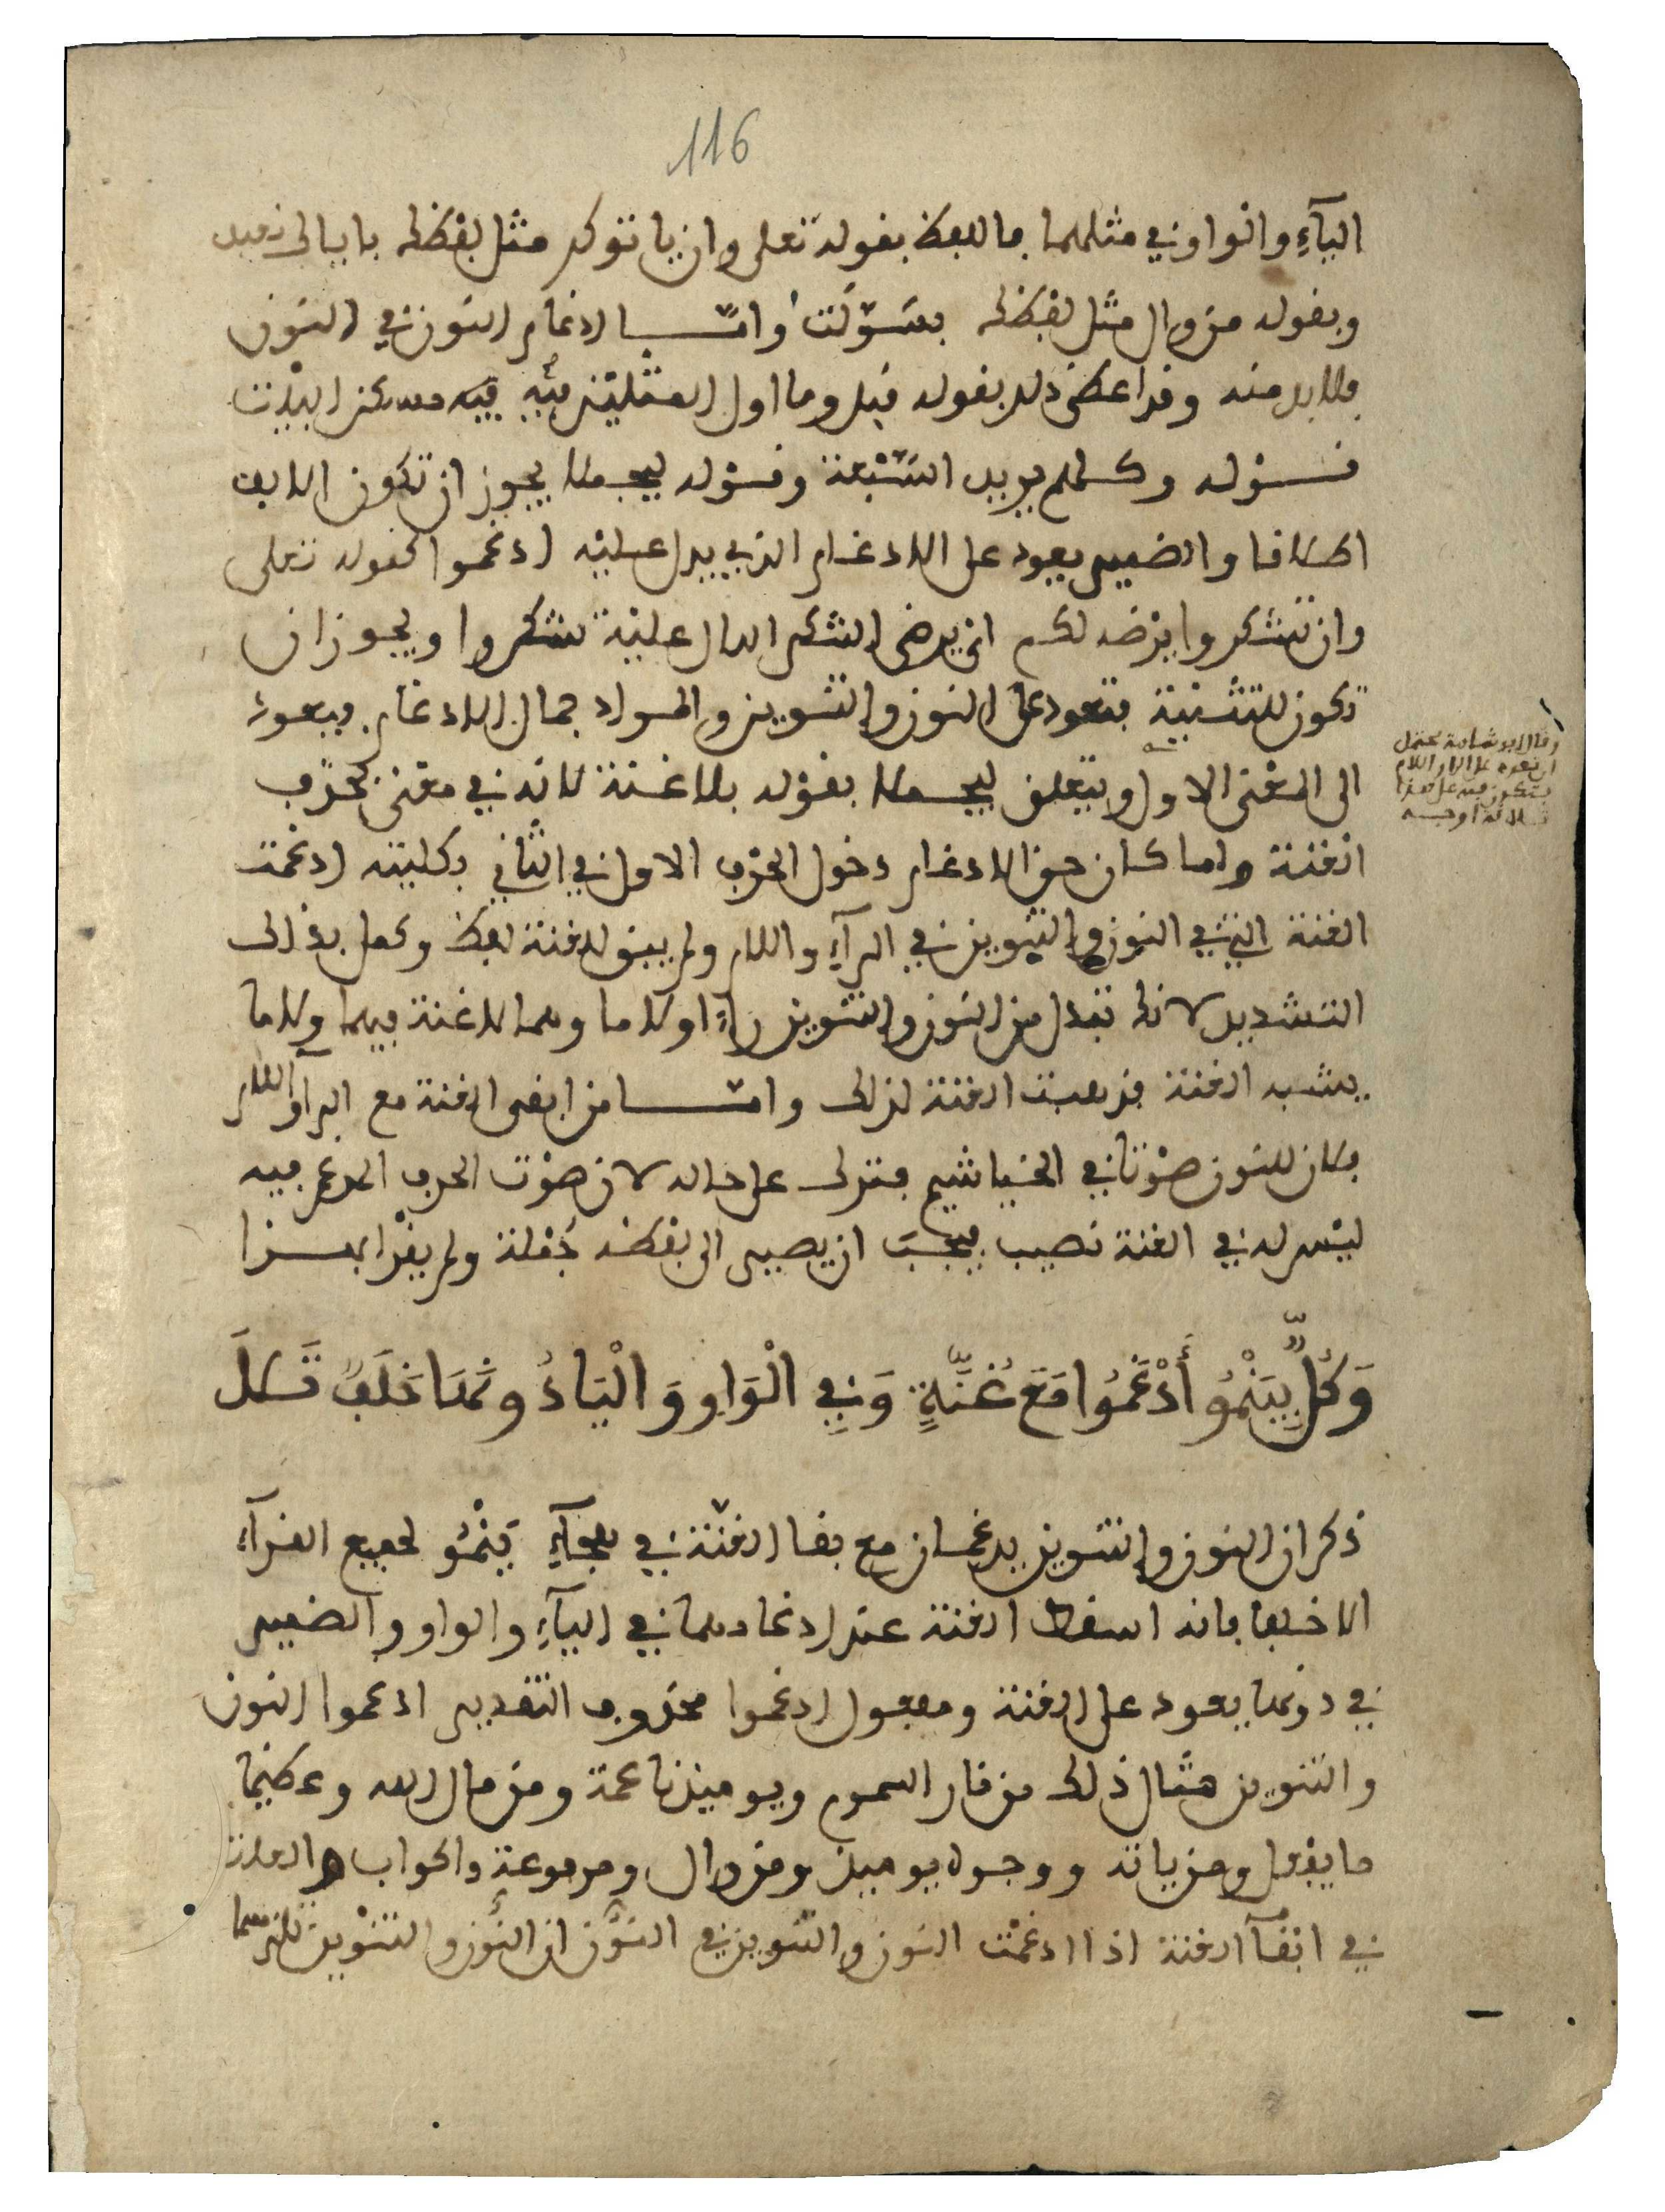 116
اليآءِ والواو في مثلهما فاللفظ بقوله تعلى وان ياتوكم مثل لفظك باياايى زميد
وبقوله من وال مثل لفظك بسَوّلَتْ وامّا ادغام النون في النون
فلا بد منه وقد اعطى ذلك بقوله قبل وما اول المثلين فيه مسكن البيْت
قوله وكلهم يريد السّبْعة وقوله ليجملا يجوز ان تكون الالف
اطلاقا والضمير يعود على الادغام الذي يدل عليْه ادغموا كقوله تعلى
وان تشكروا يرْضه لكم اي يرضى الشكر الدال عليْه تشكروا ويجوز ان
تكون للتثنية فتعود على النون والتنوين والمراد جمال الادغام فيعود
الى المعْنى الاول ويتعلق ليجملا بقوْله بلا غنة لانه في معْنى بحذف
وقال ابو شامة يحتمل
ان تعود على الرا واللام
فتكون فيه على هذا
ثلاثة اوجه
الغنة ولما كان حق الادغام دخول الحرْف الاول في الثاني بكليته ادغمت
الغنة التي في النون والتنوين في الرآءِ واللام ولم يبق للغنة لفظ وكمل بذالك
التشديد لانك تبدل من النون والتنوين راءً او لاما وهما لا غنة فيهما ولا ما
يشبه الغنة فذهبت الغنة لذلك وامّا من ابقى الغنة مع الرآ واللام
فلان للنون صوْتا في الخياشيم فترك على حاله لان صوْت الحرف المدغم فيه
ليْس له في الغنة نصيب فيجبُ ان يصير الى لفظه جُمْلة ولم يقرْا بهذا
وَكُلٌّ بِيَنْمُو أَدْغَمُوا مَعَ غُنَّةٍ وَفِي الْوَاوِ وَالْيَا دُونَهَا خَلَفٌ تَلَا
ذكر ان النون والتنوين يدغمان مع بقا الغنّة في هجآءِ يَنْمُو لجميع القرآءِ
الا خلفا فانه اسقط الغنة عند ادغامهما في اليآءِ والواو والضمير
في دونها يعود على الغنة ومفعول ادغموا محذوف التقدير ادغموا النون
والتنوين مثال ذلك من نار السموم ويوميذ ناعمة ومن مال الله وعظيما
ما يفعل ومن ياته ووجوه يوميذ ومن وال ومرفوعة واكواب والعلة
في ابقآ الغنة اذا ادغمْت النون والتنوين في النوُن ان النوُن والتنْوين